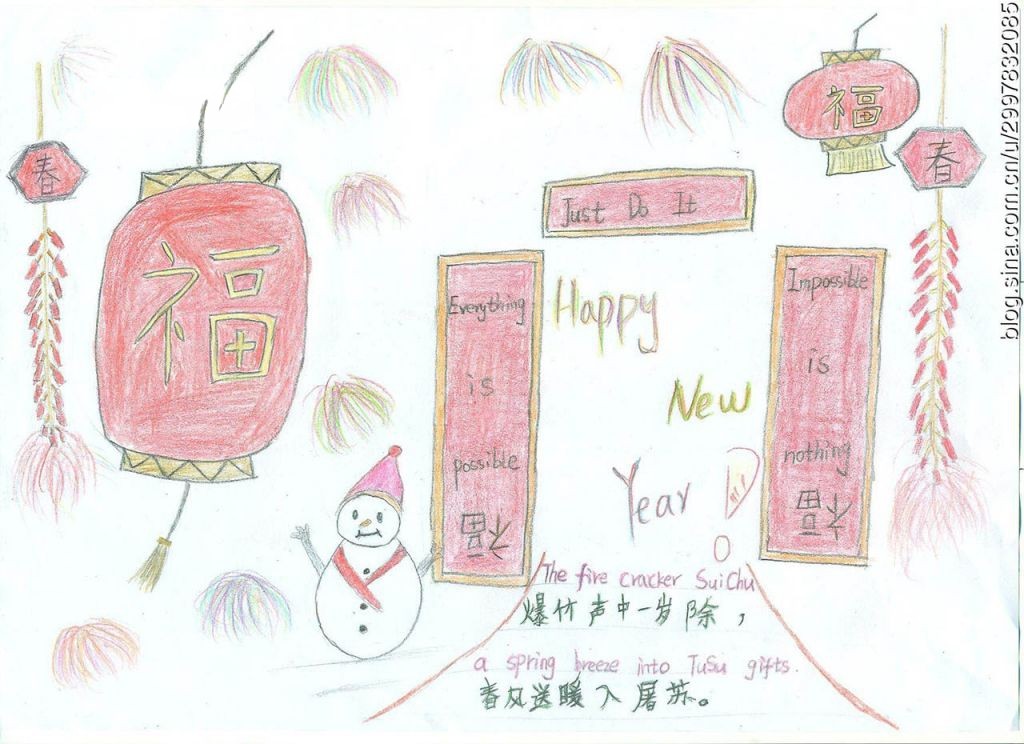 blog.sina.com.cn/u/2997832085
福
春
春
福
Just Do It
Everything
is
possible
福
Impossible
is
nothing
福
Happy
New
Year !
The fire cracker SuiChu
爆竹声中一岁除，
a spring breeze into TuSu gifts.
春风送暖入屠苏。